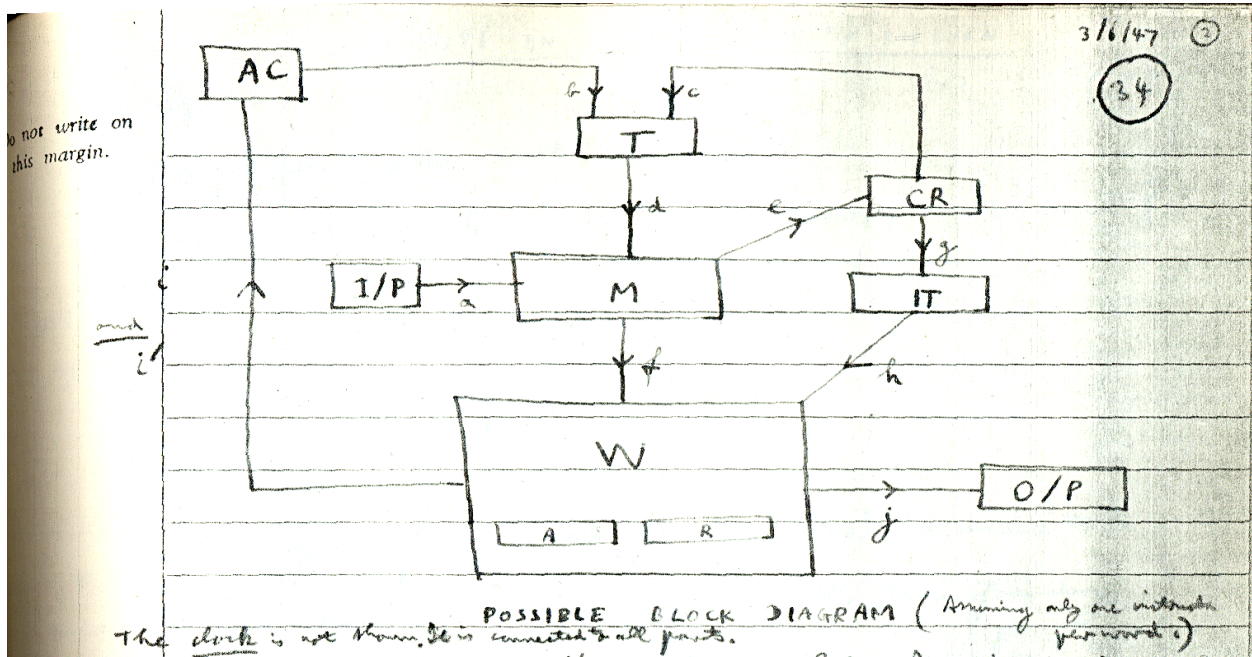 3/6/47 2
34
AC
b c
T
Do not write on
this margin.
d
e
CR
g
I/P a M
IT
i
and
i'
f
h
W
O/P
j
A R
POSSIBLE BLOCK DIAGRAM (Assuming only one
per word.)
The clock is not shown. It is connected to all parts.